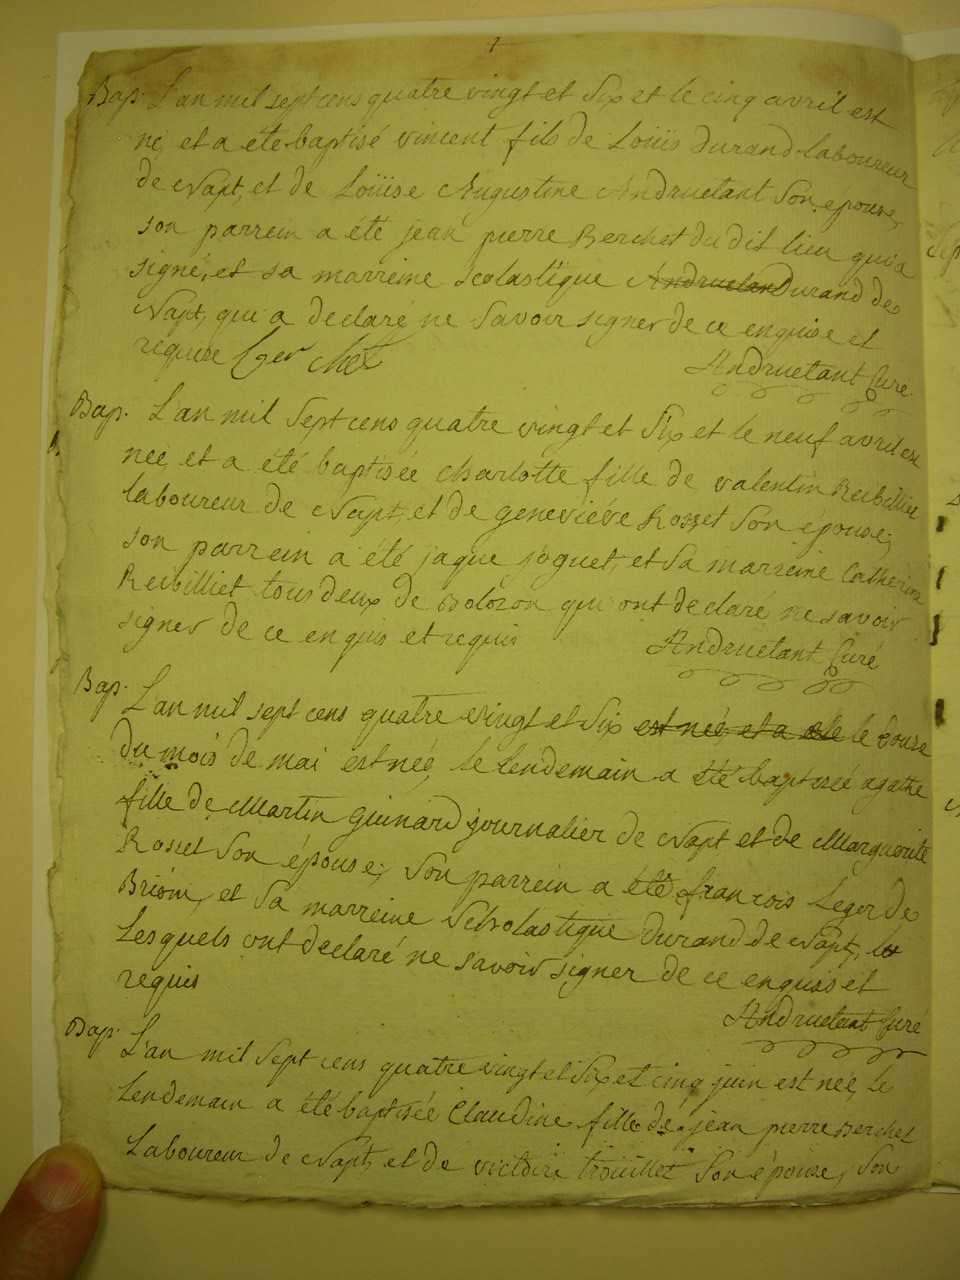 Bap. L'an mil sept cens quatre vingt et six et le cinq avril est
né, et a été baptisé vincent fils de Loüis durand laboureur
de Napt, et de Loüise Augustine Andruetant son épouse,
son parrein a été jean pierre Berchet du dit lieu qui a
signé, et sa marreine scolastique Andruetan Durand de
Napt, qui a declaré ne savoir signer de ce enquise et
requise Berchet Andruetant Curé
Bap. L'an mil sept cens quatre vingt et six et le neuf avril est
née, et a été baptisée charlotte fille de valentin Reibilliet
laboureur de Napt, et de genevieve Rosset son épouse;
son parrein a été jaque joguet, et sa marreine Catherine
Reibilliet tous deux de Bolozon qui ont declaré ne savoir
signer de ce enquis et requis Andruetant Curé
Bap. L'an mil sept cens quatre vingt et six est née et a été le douse
du mois de mai est née, le lendemain a été baptisée agathe
fille de Martin guinard journalier de Napt et de Marguerite
Rosset son épouse; son parrein a été françois Leger de
Briom, et sa marreine Scholastique durand de Napt,
Lesquels ont declaré ne savoir signer de ce enquis et
requis Andruetant Curé
Bap. L'an mil sept cens quatre vingt et six et cinq juin est née, le
Lendemain a été baptisée Claudine fille de jean pierre Berchet
Laboureur de Napt, et de victoire trouillet son épouse, son